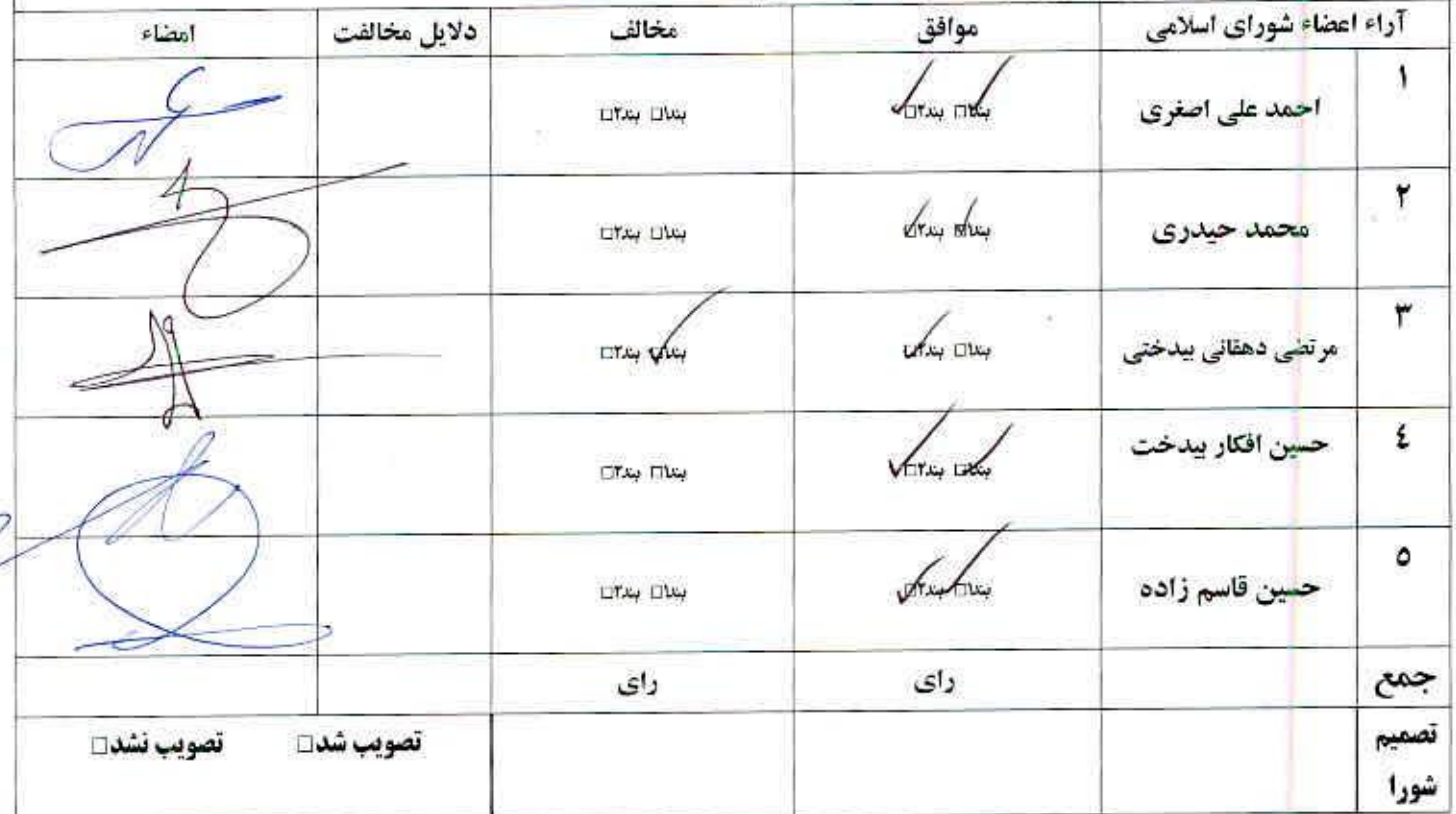 آراء اعضاء شورای اسلامی موافق مخالف دلایل مخالفت امضاء
۱ احمد علی اصغری بند۱□ بند۲□ بند۱□ بند۲□
۲ محمد حیدری بند۱□ بند۲□ بند۱□ بند۲□
۳ مرتضی دهقانی بیدختی بند۱□ بند۲□ بند۱□ بند۲□
٤ حسین افکار بیدخت بند۱□ بند۲□ بند۱□ بند۲□
٥ حسین قاسم زاده بند۱□ بند۲□ بند۱□ بند۲□
جمع رای رای
تصمیم
شورا
تصویب شد□ تصویب نشد□